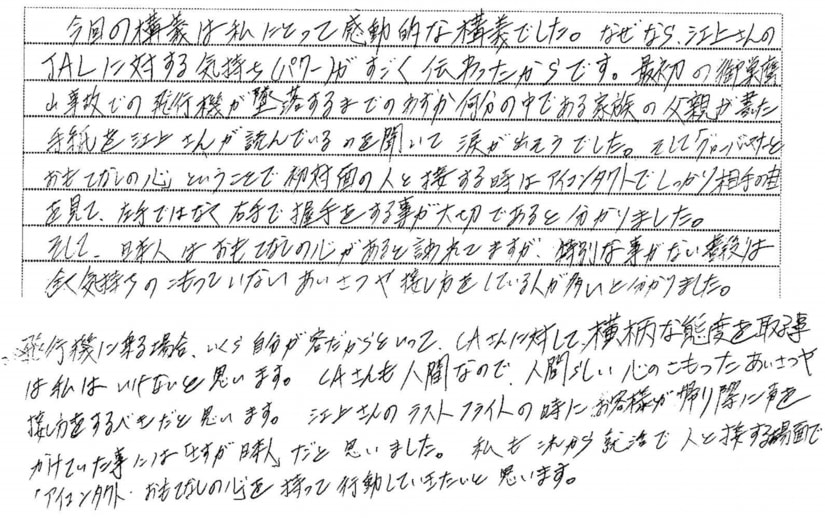 今回の構義は私にとって感動的な構義でした。なぜなら、江上さんの
JALに対する気持ち(パワー)がすごく伝わったからです。最初の御巣鷹
山事故での飛行機が墜落するまでのわずか何分の中である家族の父親が書いた
手紙を江上さんが読んでいるのを聞いて涙が出そうでした。そして「グローバルマナーと
おもてなしの心」ということで初対面の人と接する時はアイコンタクトでしっかり相手の目
を見て、左手ではなく右手で握手をする事が大切であると分かりました。
そして、日本人はおもてなしの心があると言われてますが、特別な事がない普段は
全く気持ちのこもっていないあいさつや接し方をしている人が多いと分かりました。
飛行機に乗る場合、いくら自分が客だからといって、CAさんに対して、横柄な態度を取る事
は私はいけないと思います。CAさんも人間なので、人間らしい心のこもったあいさつや
接し方をするべきだと思います。江上さんのラストフライトの時にお客様が帰り際に声を
かけていた事には「さすが日本人」だと思いました。私もこれから就活で人と接する場面で
「アイコンタクト・おもてなしの心」を持って行動していきたいと思います。